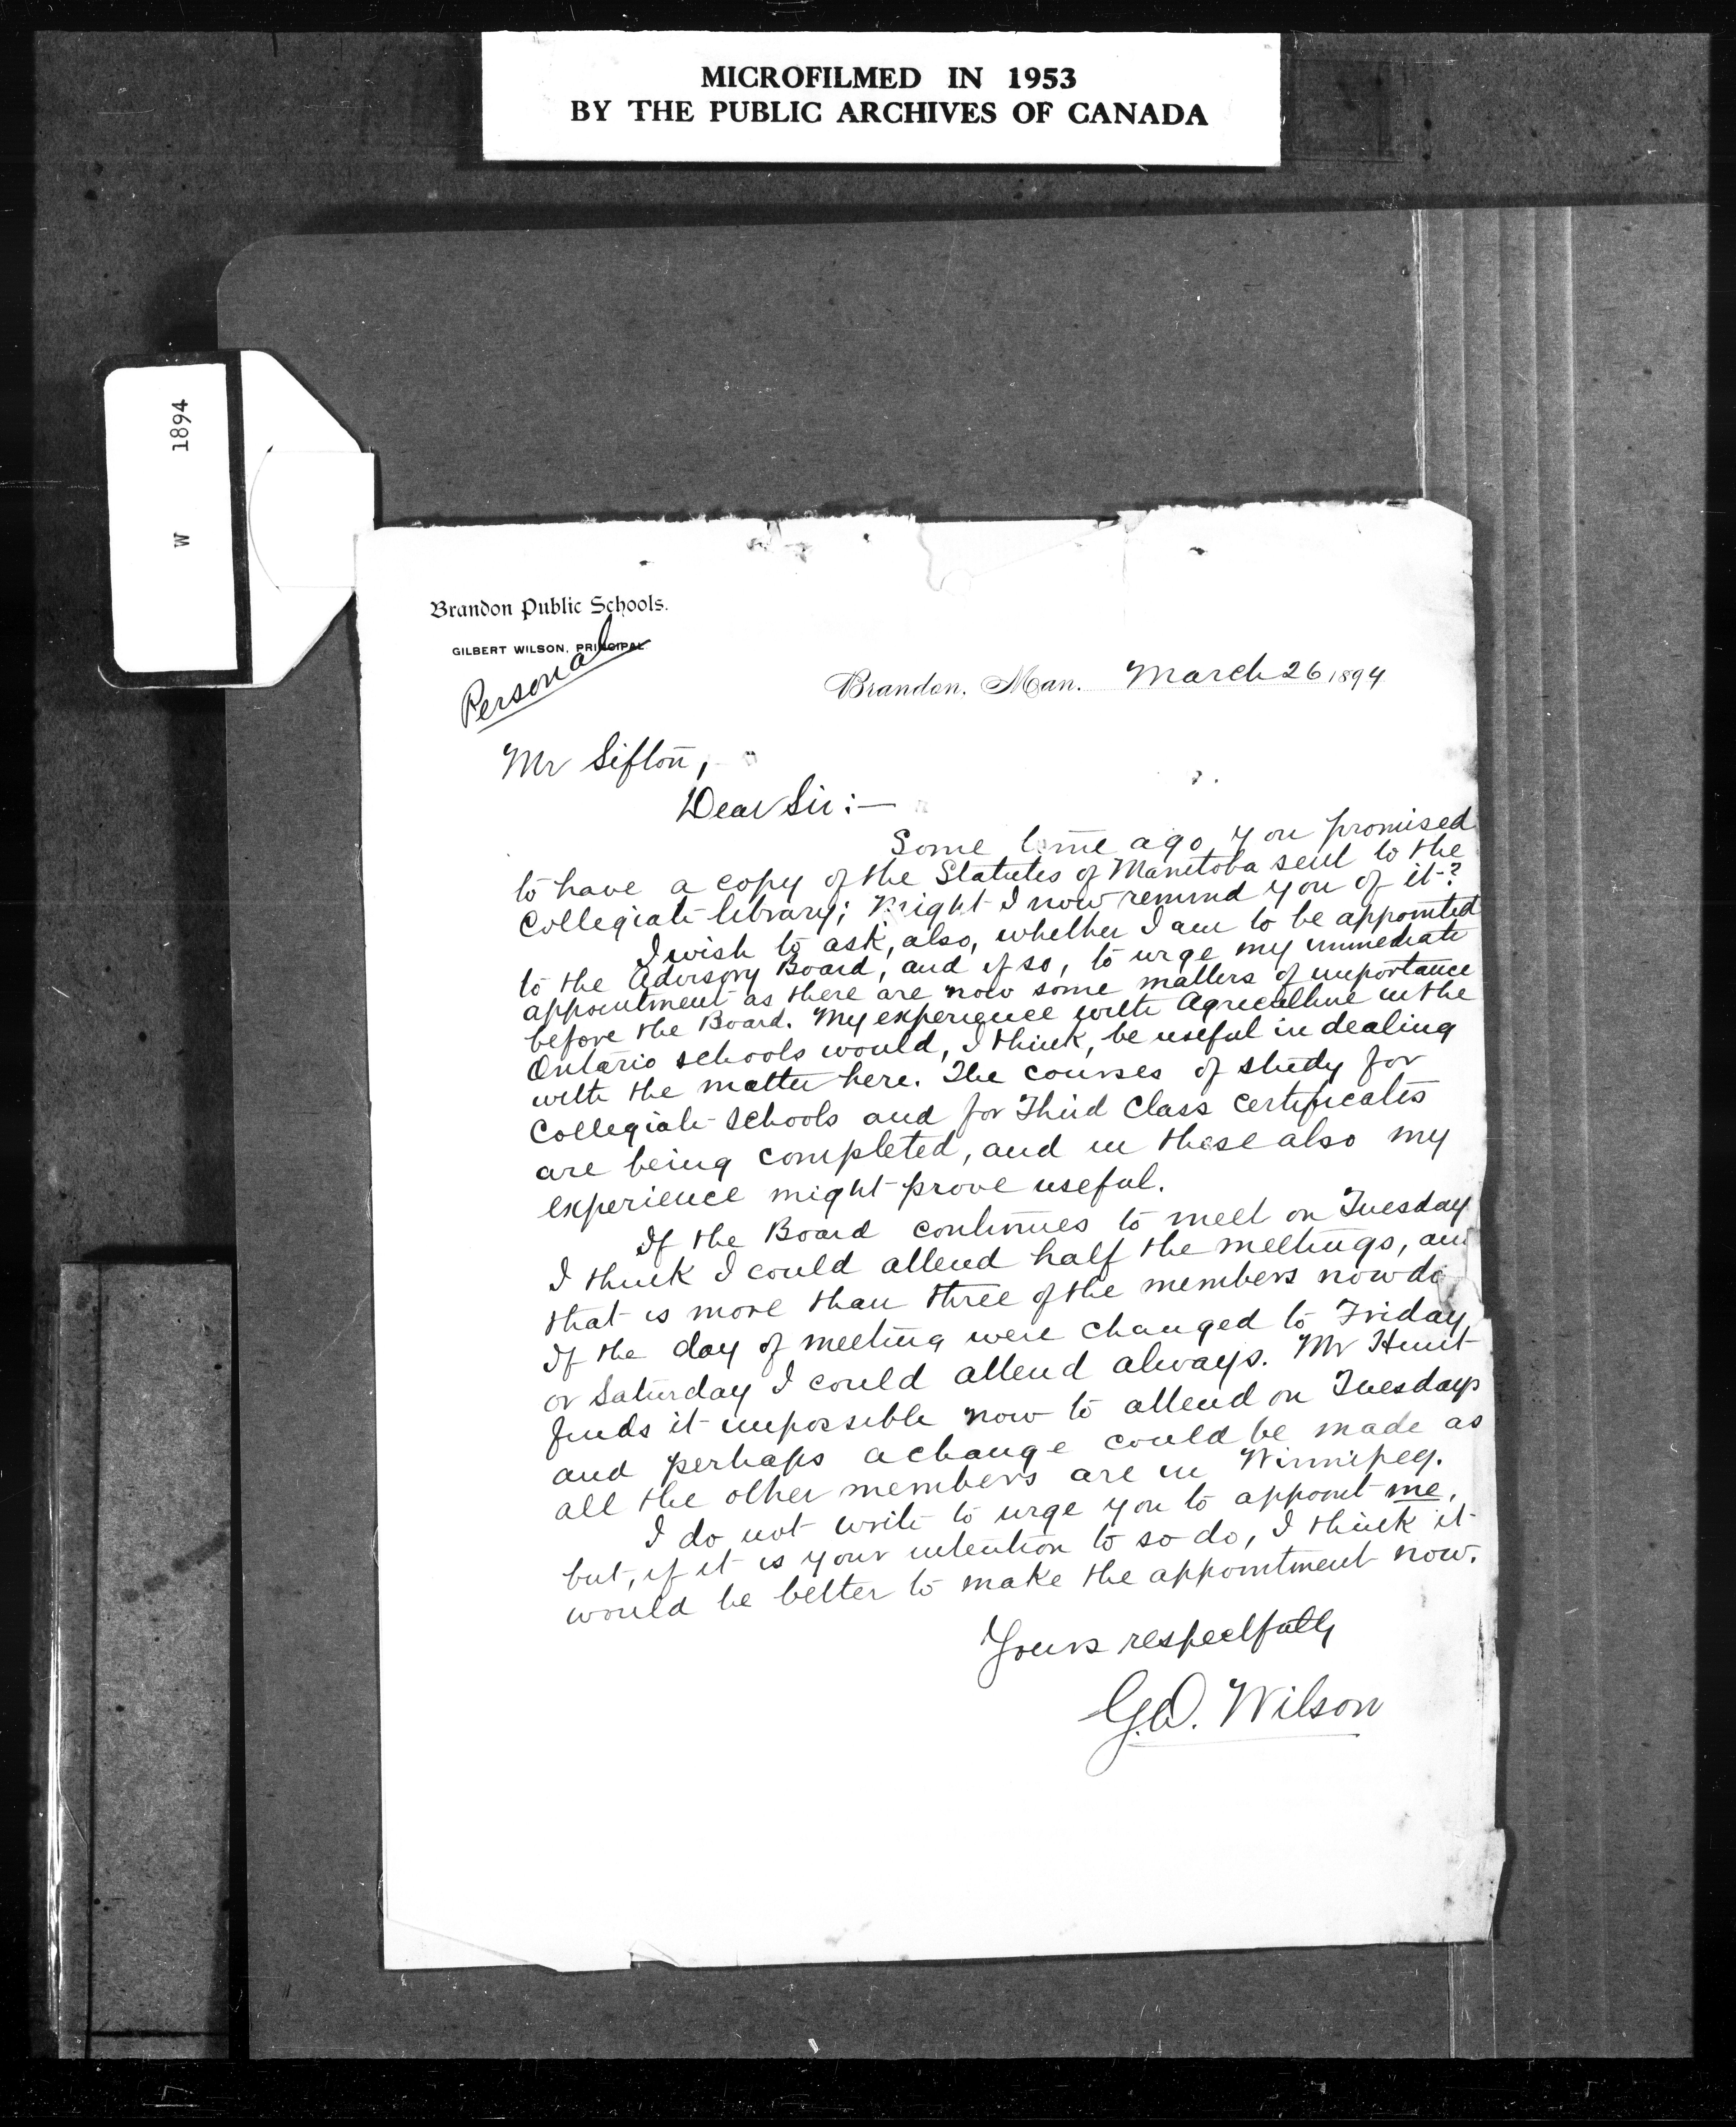 MICROFILMED IN 1953
BY THE PUBLIC ARCHIVES OF CANADA
W 1894
Brandon Public Schools.
GILBERT WILSON, PRINCIPAL
Personal
Brandon, Man. March 26 1894
Mr Sifton,
Dear Sir:—
Some time ago you promised
to have a copy of the Statutes of Manitoba sent to the
Collegiate library; Might I now remind you of it?
I wish to ask, also, whether I am to be appointed
to the Advisory Board, and if so, to urge my immediate
appointment as there are now some matters of importance
before the Board. My experience with Agriculture in the
Ontario schools would, I think, be useful in dealing
with the matter here. The courses of study for
Collegiate Schools and for Third Class Certificates
are being completed, and in these also my
experience might prove useful.
If the Board continues to meet on Tuesday
I think I could attend half the meetings, an
that is more than three of the members now do
If the day of meeting were changed to Friday,
or Saturday I could attend always. Mr Hunt
finds it impossible now to attend on Tuesdays
and perhaps a change could be made as
all the other members are in Winnipeg.
I do not write to urge you to appoint me,
but, if it is your intention to so do, I think it
would be better to make the appointment now.
Yours respectfully
G.D. Wilson